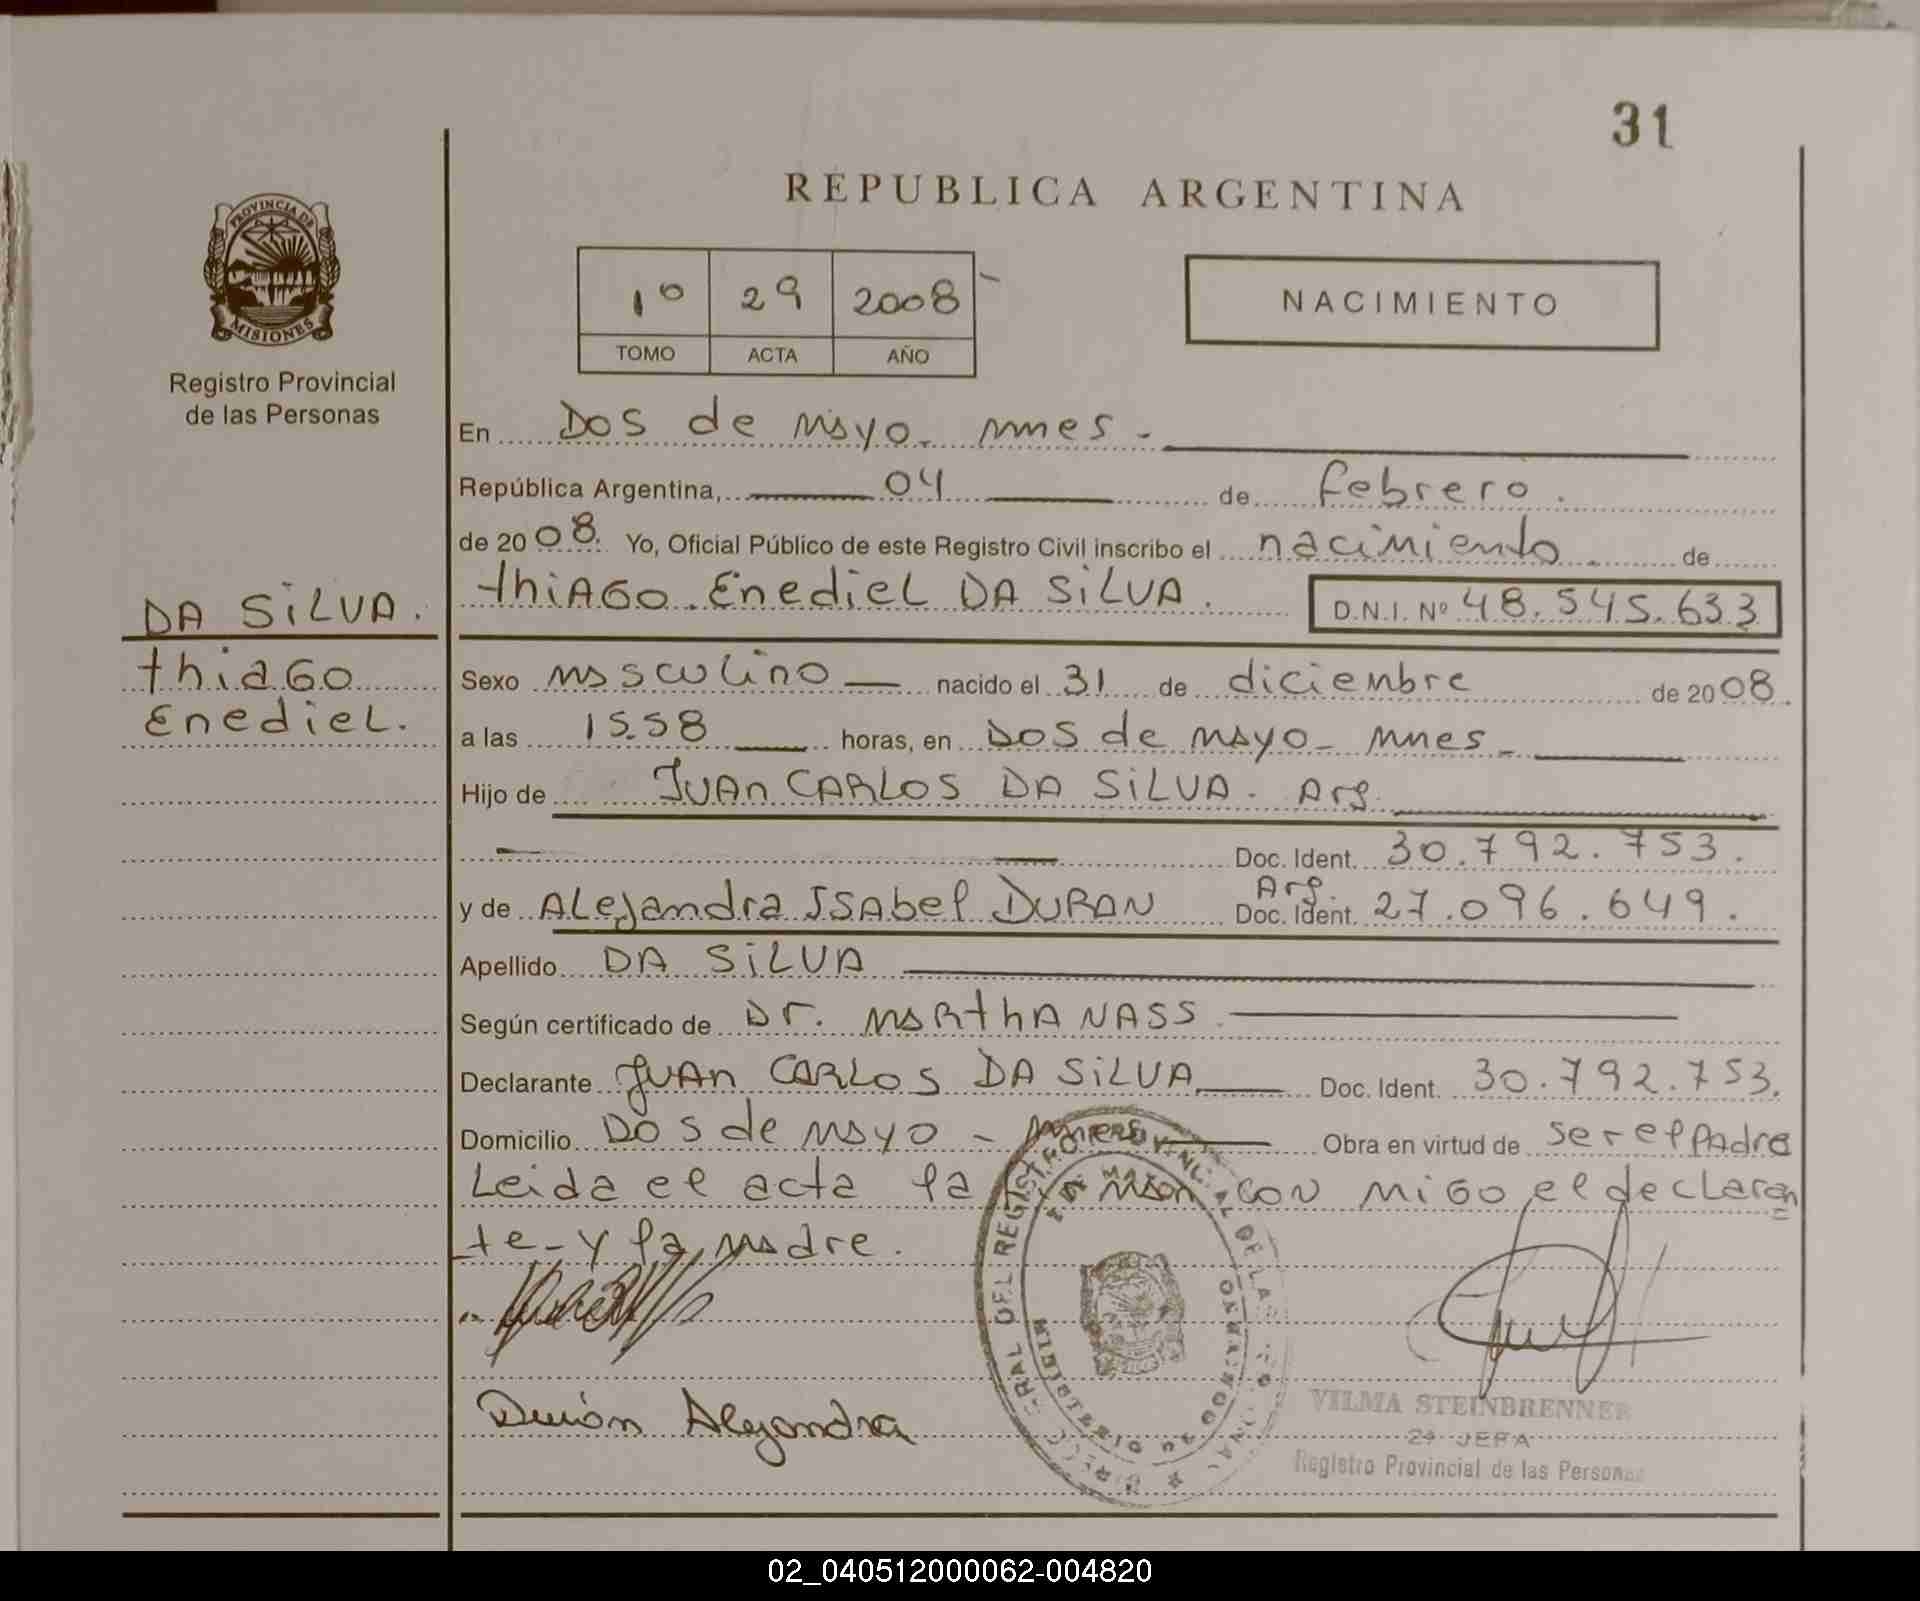 31
REPUBLICA ARGENTINA
PROVINCIA DE
MISIONES
Registro Provincial
de las Personas
1º 29 2008
TOMO ACTA AÑO
NACIMIENTO
En Dos de Mayo - mnes -
República Argentina, 04 de Febrero.
de 2008. Yo, Oficial Público de este Registro Civil inscribo el nacimiento de
DA SiLVA.
thiAGo Enediel DA SiLVA. D.N.I. Nº 48.545.633
thiaGo
Enediel.
Sexo Masculino nacido el 31 de diciembre de 2008.
a las 15.58 horas, en Dos de Mayo - Mnes -
Hijo de JUAn CARLOS DA SiLVA. Arg.
Doc. Ident. 30.792.753.
y de ALejandra ISAbel DURAN Arg. Doc. Ident. 27.096.649.
Apellido DA SiLVA
Según certificado de Dr. MARthA NASS
Declarante JUAn CARLOS DA SiLVA Doc. Ident. 30.792.753.
Domicilio Dos de Mayo - Obra en virtud de ser el PAdre
Leida el acta la con MiGo el declaran
te - y la Madre.
Durán Alejandra
VILMA STEINBRENNER
2ª JEFA
Registro Provincial de las Personas
02_040512000062-004820